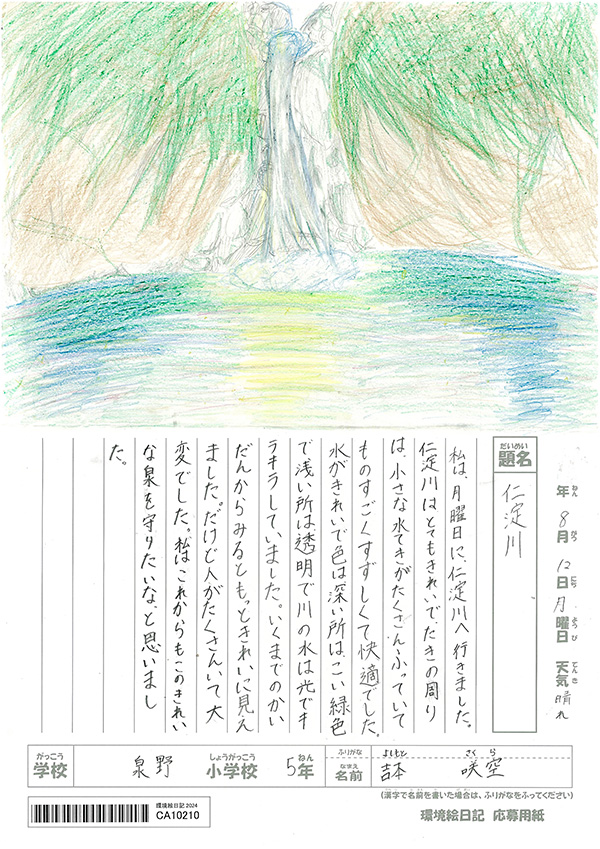 年 8月 12日 月曜日 天気 晴れ
ねん がつ にち ようび てんき
だいめい
題名
仁淀川
私は、月曜日に、仁淀川へ行きました。
仁淀川はとてもきれいで、たきの周り
は、小さな水てきがたくさんふっていて
ものすごくすずしくて快適でした。
水がきれいで色は深い所は、こい緑色
で浅い所は、透明で川の水は光でキ
ラキラしていました。いくまでのかい
だんからみるともっときれいに見え
ました。だけど人がたくさんいて大
変でした。私はこれからもこのきれい
な泉を守りたいな、と思いまし
た。
がっこう
学校
泉野
しょうがっこう
小学校
5年
ねん
ふりがな
よしもと さくら
なまえ
名前
吉本 咲空
(漢字で名前を書いた場合は、ふりがなをふってください)
環境絵日記 応募用紙
環境絵日記 2024
CA10210